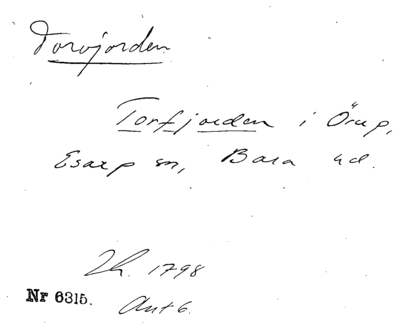 Torvjorden
Torfjorden i Örup,
Esarp sn, Bara hd.
Lh. 1798
Nr 6315. Akt 6.